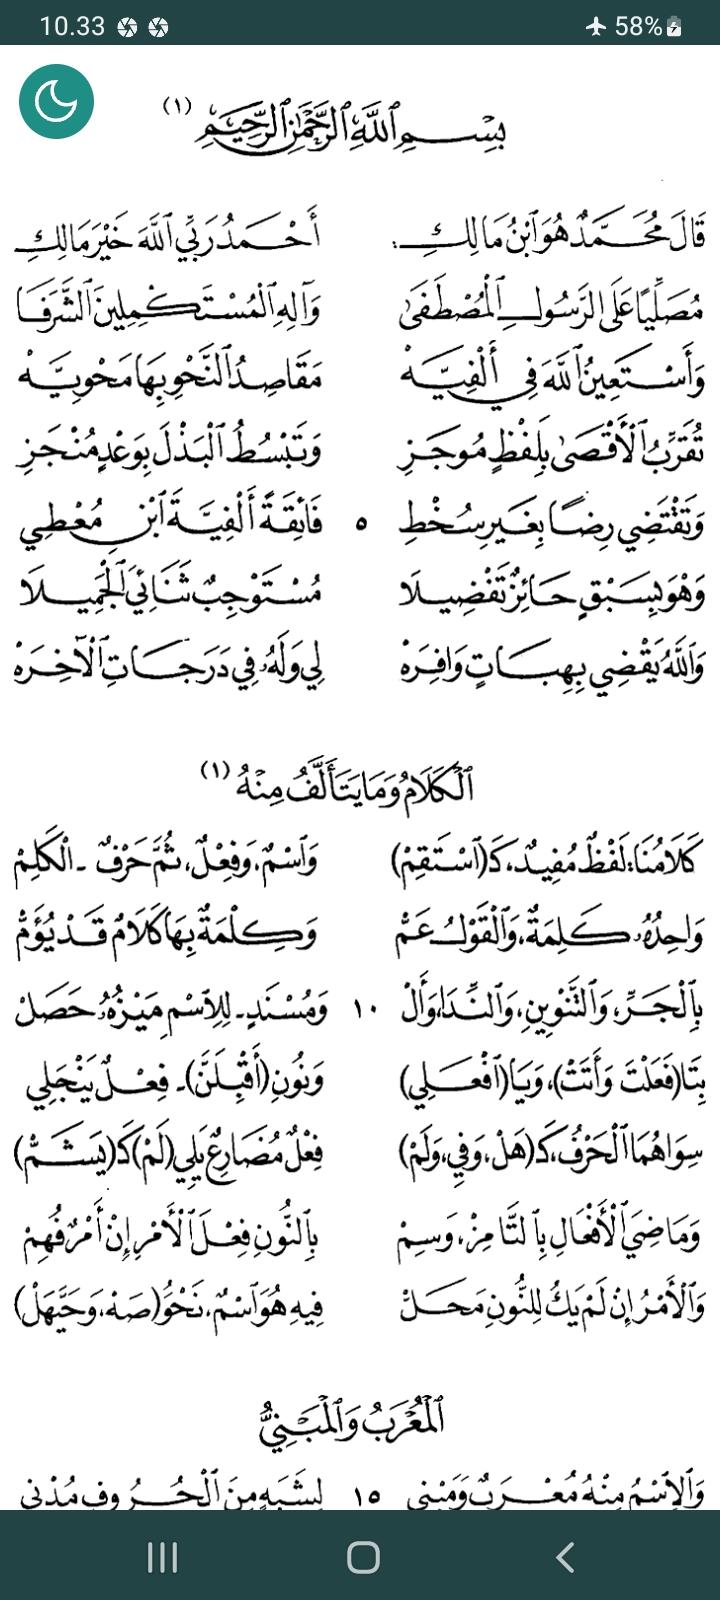 10.33 58%
بِسْمِ اللَّهِ الرَّحْمَٰنِ الرَّحِيمِ (١)
قَالَ مُحَمَّدٌ هُوَ ابْنُ مَالِكِ: أَحْمَدُ رَبِّي اللَّهَ خَيْرَ مَالِكِ
مُصَلِّيًا عَلَى الرَّسُولِ الْمُصْطَفَىٰ وَآلِهِ الْمُسْتَكْمِلِينَ الشَّرَفَا
وَأَسْتَعِينُ اللَّهَ فِي أَلْفِيَّهْ مَقَاصِدُ النَّحْوِ بِهَا مَحْوِيَّهْ
تُقَرِّبُ الْأَقْصَىٰ بِلَفْظٍ مُوجَزِ وَتَبْسُطُ الْبَذْلَ بِوَعْدٍ مُنْجَزِ
وَتَقْتَضِي رِضًا بِغَيْرِ سُخْطِ ٥ فَائِقَةً أَلْفِيَّةَ ابْنِ مُعْطِي
وَهْوَ بِسَبْقٍ حَائِزٌ تَفْضِيلَا مُسْتَوْجِبٌ ثَنَائِيَ الْجَمِيلَا
وَاللَّهُ يَقْضِي بِهِبَاتٍ وَافِرَهْ لِي وَلَهُ فِي دَرَجَاتِ الْآخِرَهْ
الْكَلَامُ وَمَا يَتَأَلَّفُ مِنْهُ (١)
كَلَامُنَا: لَفْظٌ مُفِيدٌ، كَـ(اسْتَقِمْ) وَاسْمٌ، وَفِعْلٌ، ثُمَّ حَرْفٌ - الْكَلِمْ
وَاحِدُهُ كَلِمَةٌ، وَالْقَوْلُ عَمّْ وَكِلْمَةٌ بِهَا كَلَامٌ قَدْ يُؤَمّْ
بِالْجَرِّ، وَالتَّنْوِينِ، وَالنِّدَا، وَأَلْ ١٠ وَمُسْنَدٍ - لِلِاسْمِ مَيْزُهُ حَصَلْ
بِتَا (فَعَلْتَ وَأَتَتْ)، وَيَا (افْعَلِي) وَنُونِ (أَقْبِلَنَّ) - فِعْلٌ يَنْجَلِي
سِوَاهُمَا الْحَرْفُ، كَـ(هَلْ، وَفِي، وَلَمْ) فِعْلٌ مُضَارِعٌ يَلِي (لَمْ) كَـ(يَشَمّْ)
وَمَاضِيَ الْأَفْعَالِ بِالتَّا مِزْ، وَسِمْ بِالنُّونِ فِعْلَ الْأَمْرِ إِنْ أَمْرٌ فُهِمْ
وَالْأَمْرُ إِنْ لَمْ يَكُ لِلنُّونِ مَحَلّْ فِيهِ هُوَ اسْمٌ، نَحْوُ (صَهْ، وَحَيَّهَلْ)
الْمُعْرَبُ وَالْمَبْنِيُّ
وَالِاسْمُ مِنْهُ مُعْرَبٌ وَمَبْنِي ١٥ لِشَبَهٍ مِنَ الْحُرُوفِ مُدْنِي